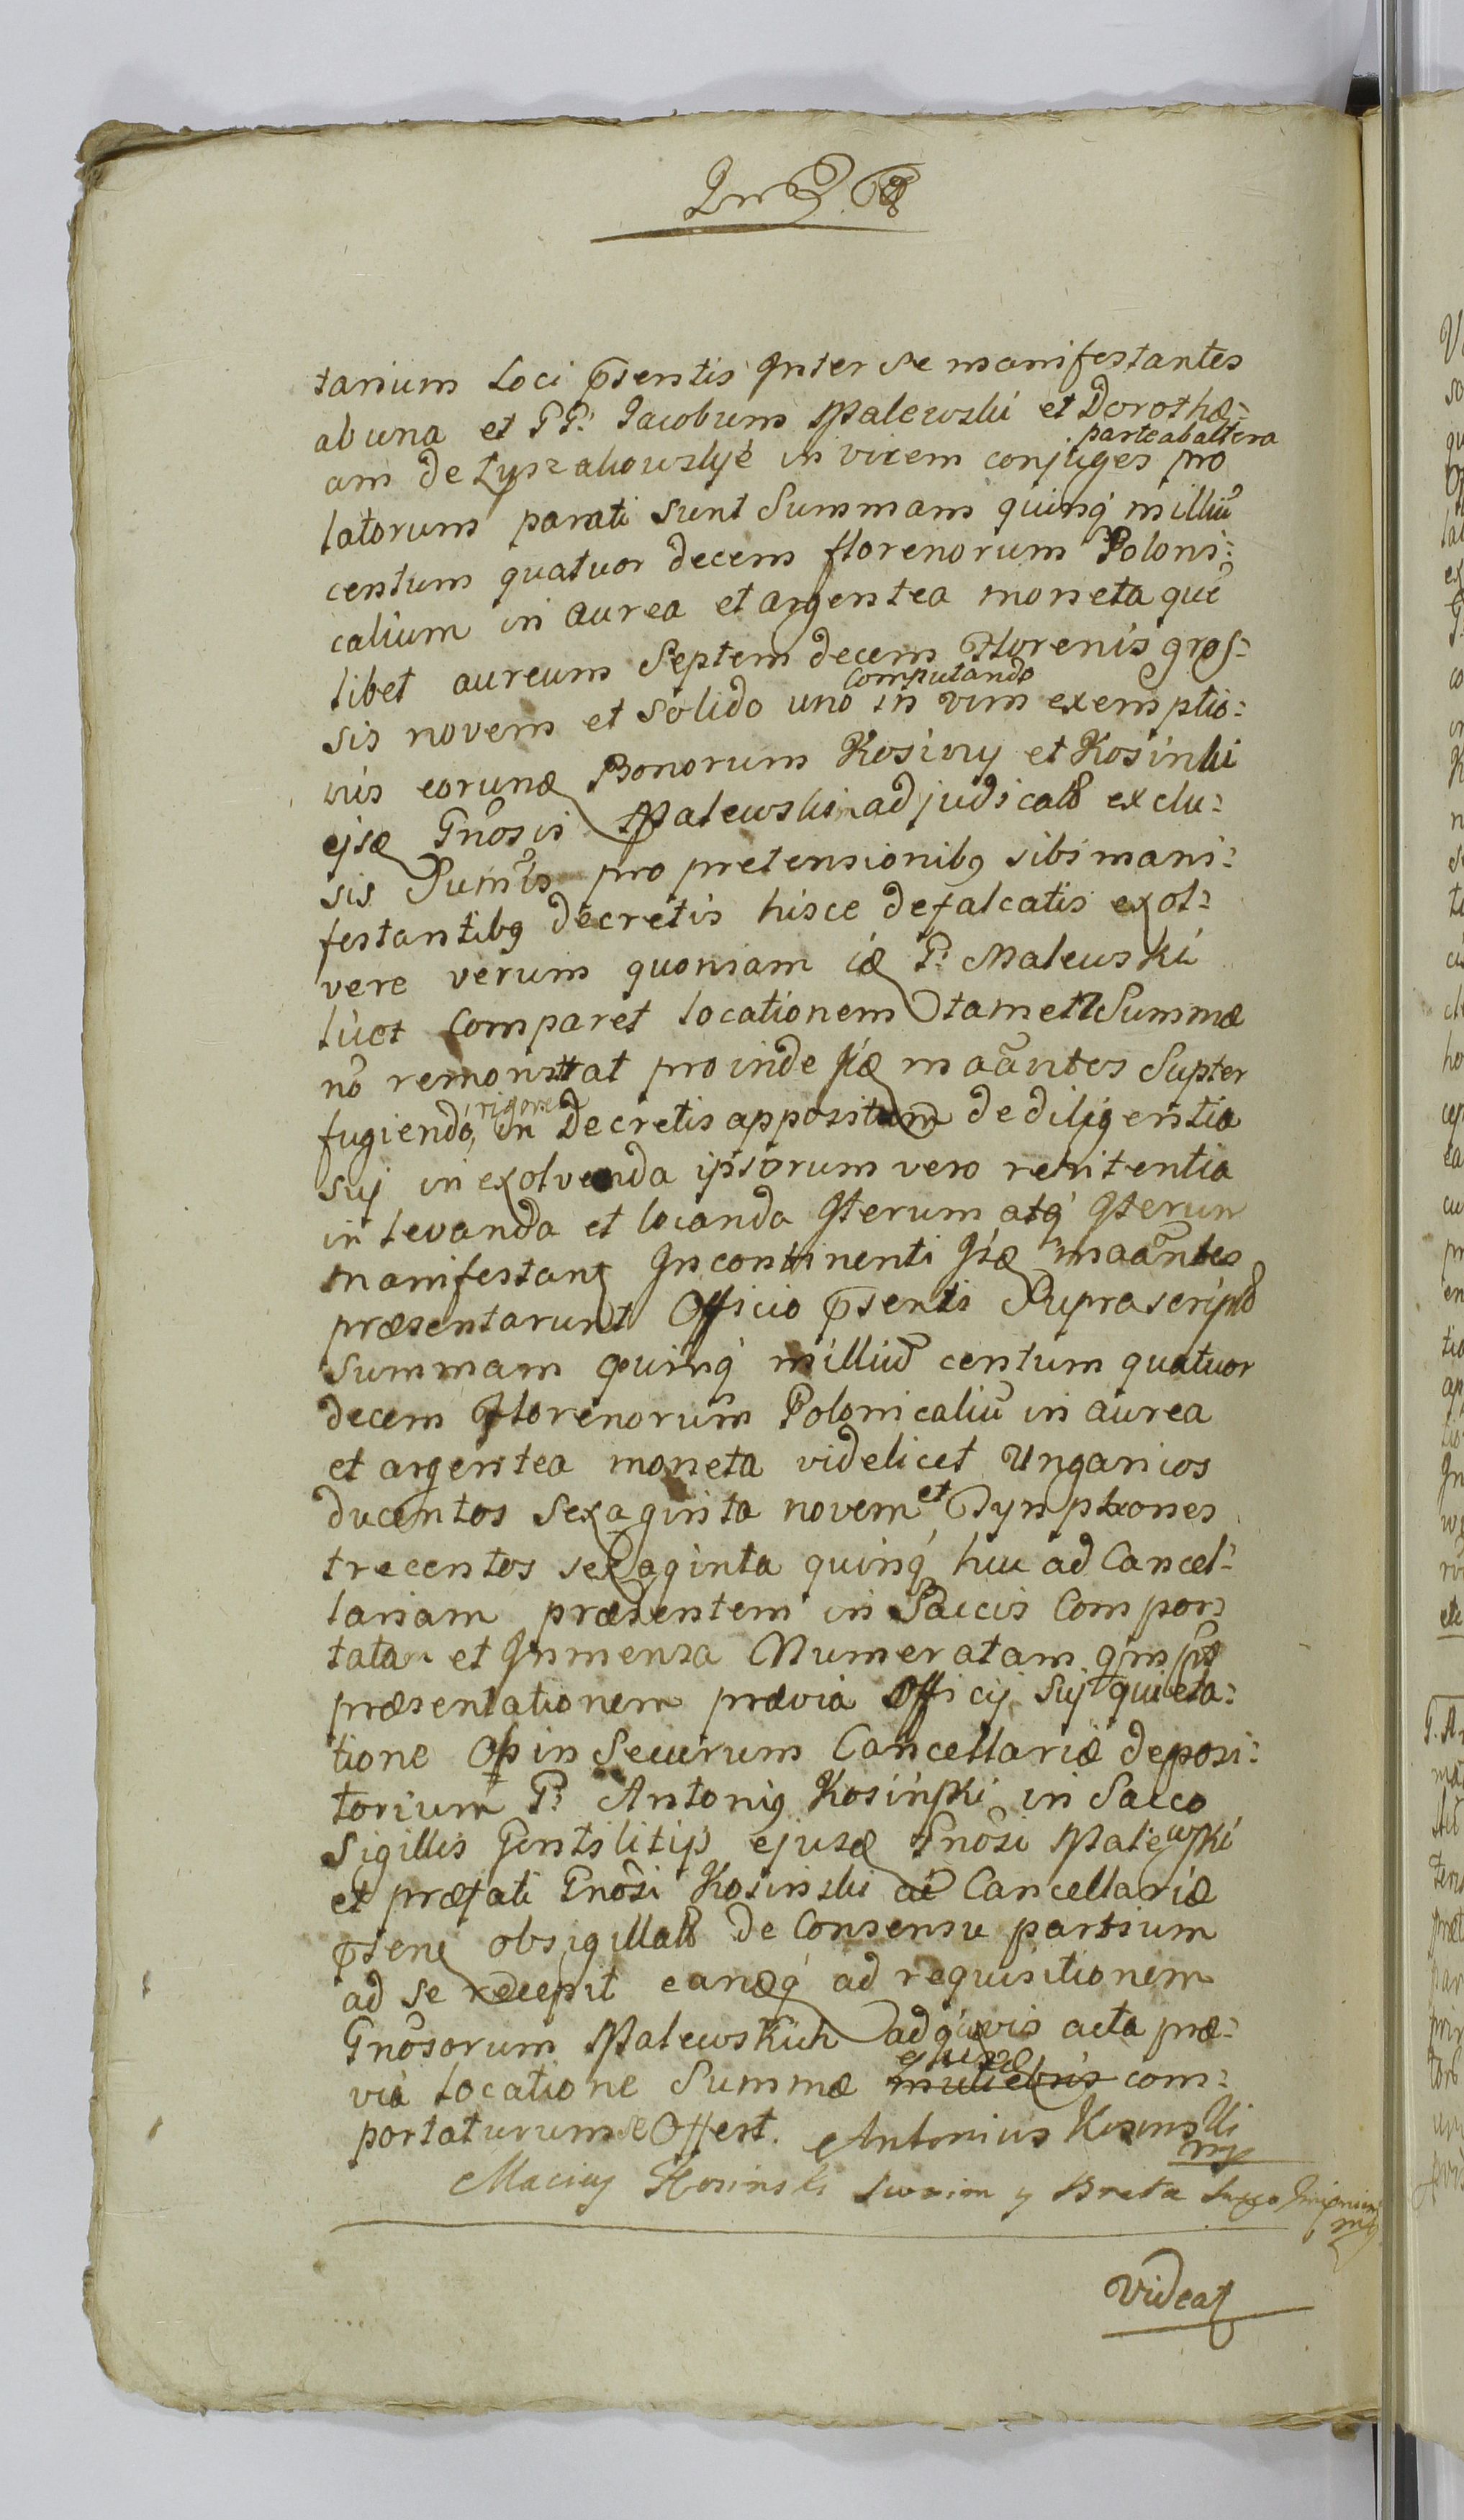 tarium Loci pñtentis Inter se manifestantes
ab una et PP: Jacobum Malewski et Dorothæ=
parte ab altera
am de Łyszakowskje in vicem conjuges pro
latorum parati sunt Summam quinq́ milliū
centum quatuor decem florenorum Poloni=
calium in aurea et argentea moneta que
libet aureum Septem decem Florenis gros=
Computando
sis novem et solido uno in vim exemptio=
nis eorund Bonorum Kosiny et Kosinki
ejsd Gnosis Malewski adjudicato exclu=
sis Sumis pro pretensionibq sibi mani=
festantibq decretis hisce defalcatis exol=
vere verum quoniam id P: Malewski
licet Comparet locationem tamen Summæ
nō remonstrat proinde Iid maāntes Supter
rigorem
fugiendo, in Decretis appositum de diligentia
suj in exolvenda ipsorum vero renitentia
in levanda et locanda Iterum atq́ Iterum
manifestant Incontinenti Iid maāntes
præsentarunt Officio pñtenti Suprascripto
summam quinq́ milliū centum quatuor
decem Florenorum Polonicaliū in aurea
et argentea moneta videlicet Ungaricos
ducentos sexaginta novem et Tynphones
trecentos sexaginta quinq́ huc ad Cancel=
lariam præsentem in Saccis Compor=
tata et In mensa Numeratam qm pt
præsentationem prævia Officij Suj quieta=
tione Op in Securum Cancellariæ deposi=
torium P: Antoniq Kosinski in Sacco
Sigillis Gentilitijs ejusd Gnosi Malewski
et præfati Gnosi Kosinski ac Cancellariæ
pñten obsigillato de Consensu partium
ad se recepit eandq́ ad requisitionem
Gnosorum Malewskich ad quævis acta præ=
ejusd
via locatione Summæ muliebris com=
portaturum se Offert. Antonius Kosinski
mp
Maciej Kosinski swoim y Brata swego Imieniem
mp
Videat